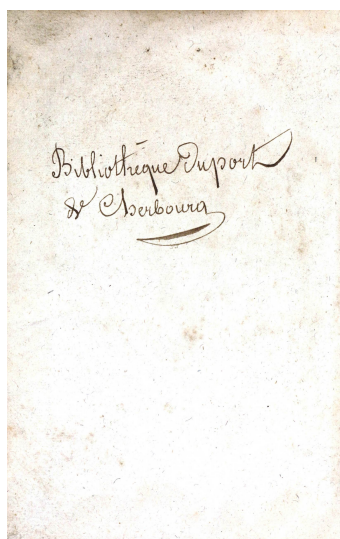 Bibliothèque Duport
de Cherbourg